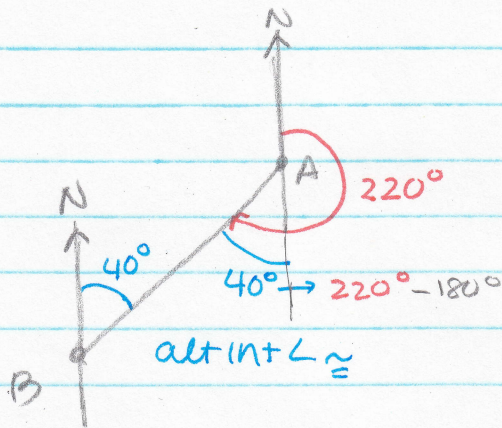 N
A
220°
N
40°
40° → 220° - 180°
alt int ∠ ≅
B